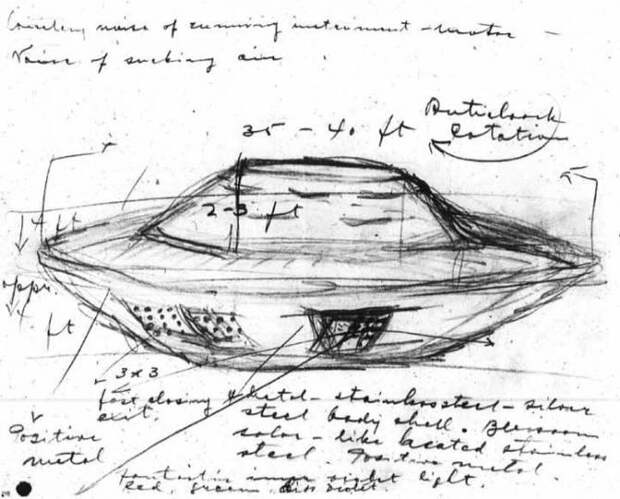 noise of running instrument - motor -
Noise of sucking air
35 - 40 ft
Anticlock
Rotation
2-3 ft
4 ft
appr.
ft
3 x 3
fast closing
exit.
Positive
metal
Metal - stainless steel - silver
steel body shell.
color - like heated stainless
steel. Positive metal.
Fantastic inner violet light.
Red, green,